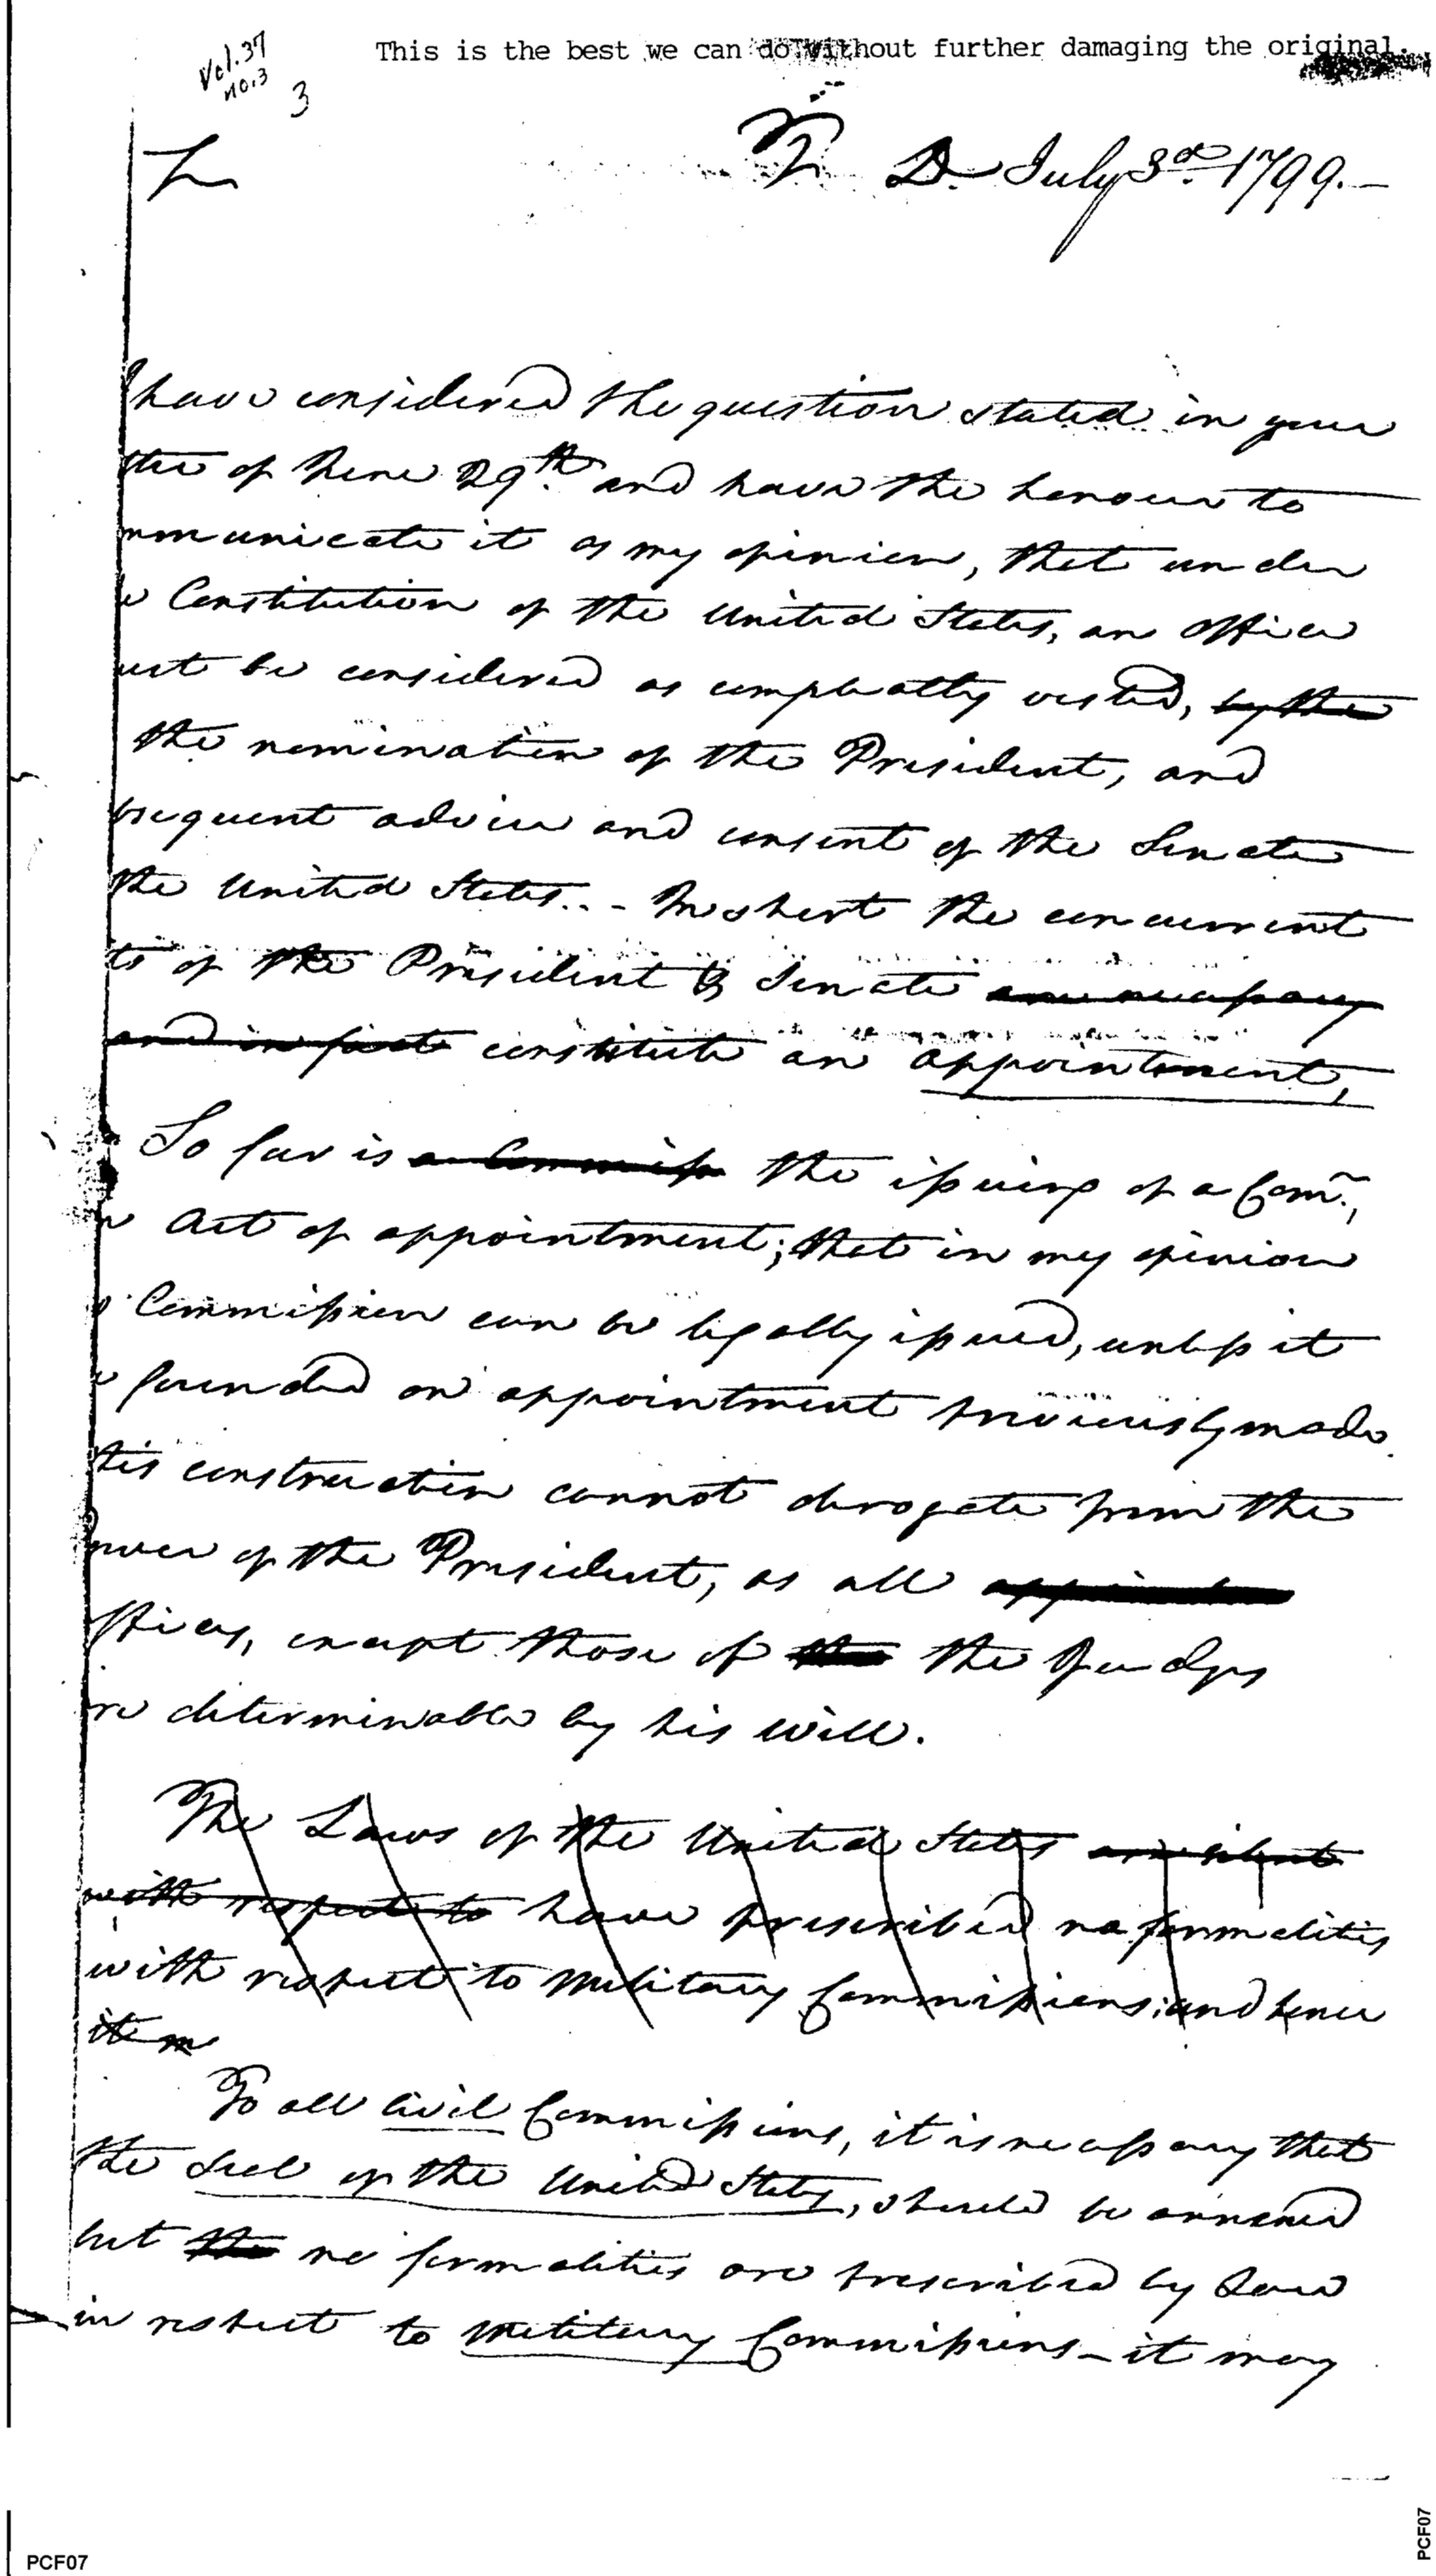 This is the best we can do without further damaging the original.
Vol. 37
no. 3
3
T. D. July 3d. 1799.—
I have considered the question stated in your
tter of June 29th. and have the honour to
mmunicate it as my opinion, that under
e Constitution of the United States, an office
ust be considered as compleatly vested, by the
the nomination of the President, and
bsequent advice and consent of the Senate
the United States.. - In short the concurrent
ts of the President & Senate are necessary
and in fact constitute an appointment,
So far is a Commiss the issuing of a Comn.,
n Act of appointment; that in my opinion
o Commission can be legally issued, unless it
e founded on appointment previously made.
his construction cannot derogate from the
ower of the President, as all
ffices, except those of the the Judges
re determinable by his will.
The Laws of the United States are silent
with respect to have prescribed no formalities
with respect to Military Commissions; and hence
it m
To all Civil Commissions, it is necessary that
the Seal of the United States, should be annexed
but the no formalities are prescribed by Law
in respect to Military Commissions – it may
PCF07
PCF07